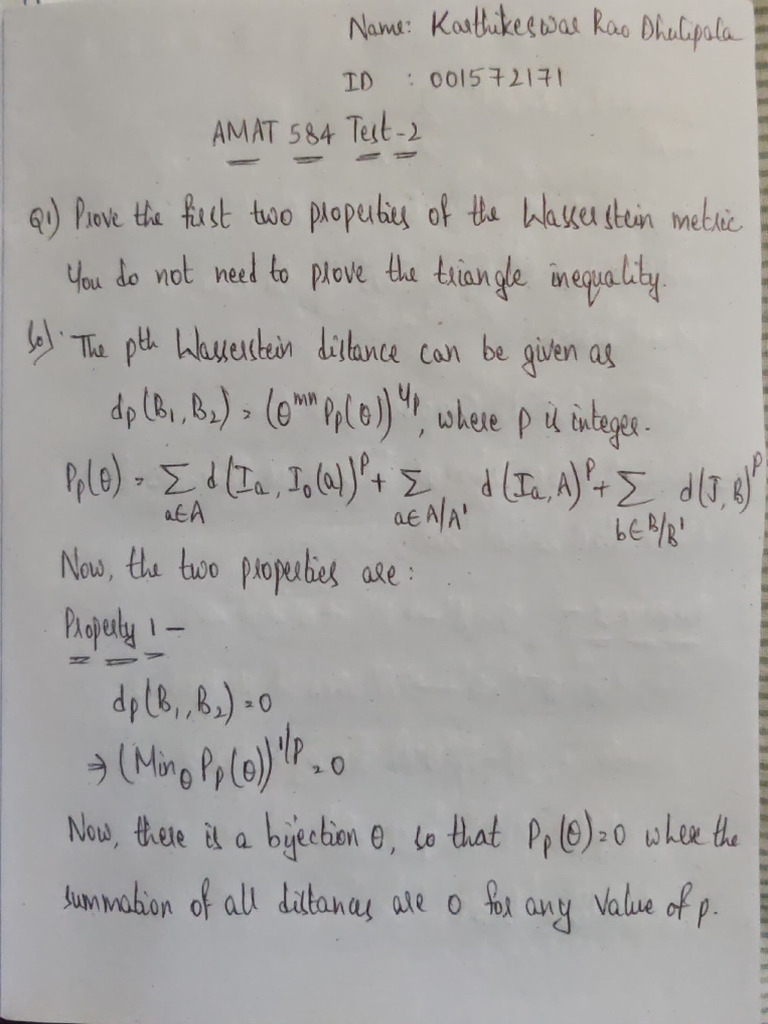 Name: Karthikeswar Rao Dhulipala
ID : 001572171
AMAT 584 Test-2
Q1) Prove the first two properties of the Wasserstein metric
You do not need to prove the triangle inequality.
Sol. The pth Wasserstein distance can be given as
dp(B₁, B₂) = (θᵐⁿ Pp(θ))^1/p, where p is integer.
Pp(θ) = Σ_{a∈A} d(Ia, Io(a))^p + Σ_{a∈A/A'} d(Ia, A)^p + Σ_{b∈B/B'} d(J, B)^p
Now, the two properties are:
Property 1 -
dp(B₁, B₂) = 0
⇒ (Min_θ Pp(θ))^1/p = 0
Now, there is a bijection θ, so that Pp(θ) = 0 where the
summation of all distances are 0 for any value of p.